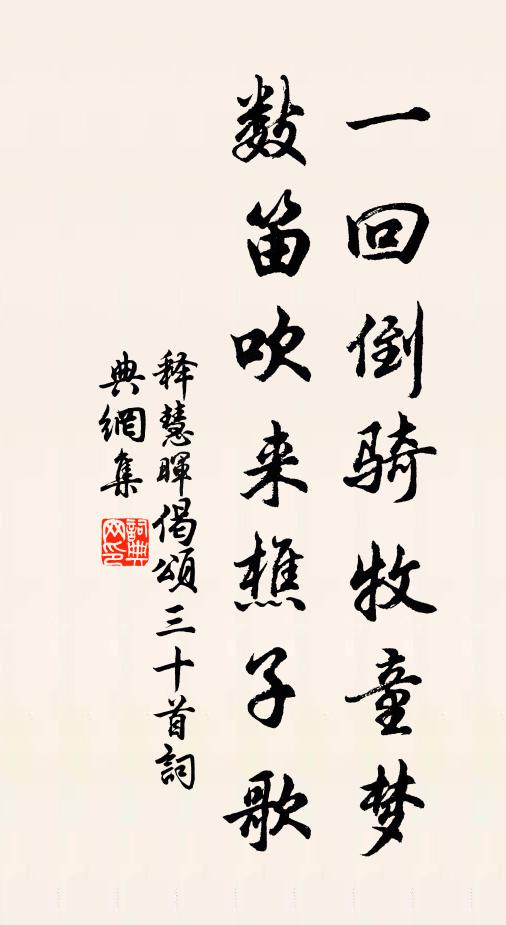 一回倒骑牧童梦
数笛吹来樵子歌
释慧暉偈頌三十首詞
典網集
詞典
网印